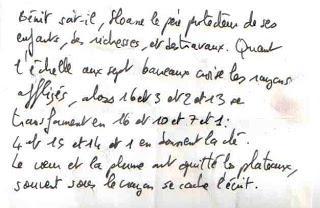 Bénit soit-il, Hoane le père protecteur de ses
enfants, des richesses, et des travaux. Quant
l'échelle aux sept barreaux croise les rayons
affligés, alors 16 et 3 et 2 et 13 se
transforment en 16 et 10 et 7 et 1 :
4 et 15 et 14 et 1 en donnent la clé.
Le cœur et la plume ont quitté les plateaux,
souvent sous le crayon se cache l'écrit.